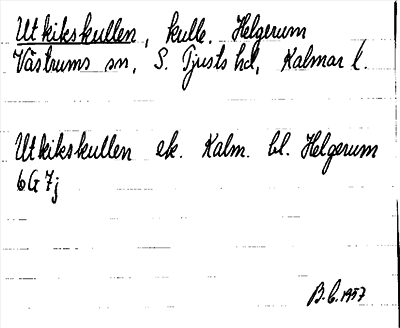 Utkikskullen, kulle, Helgerum
Västrums sn, S. Tjusts hd, Kalmar l.
Utkikskullen ek. Kalm. bl. Helgerum
6G 7j
B.C. 1957